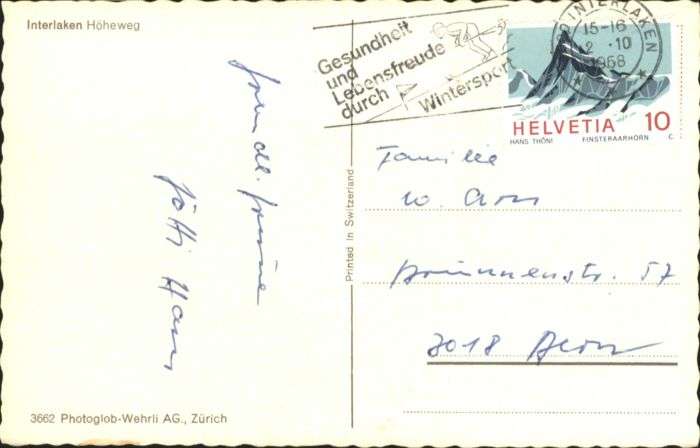 Interlaken Höheweg
Gesundheit
und
Lebensfreude
durch
Wintersport
INTERLAKEN
15-16
2.10
1968
HELVETIA 10
HANS THÖNI FINSTERAARHORN C.
Familie
W.
Brünnenstr. 57
3018 Bern
freundl. Grüsse
Hans
Printed in Switzerland
3662 Photoglob-Wehrli AG., Zürich